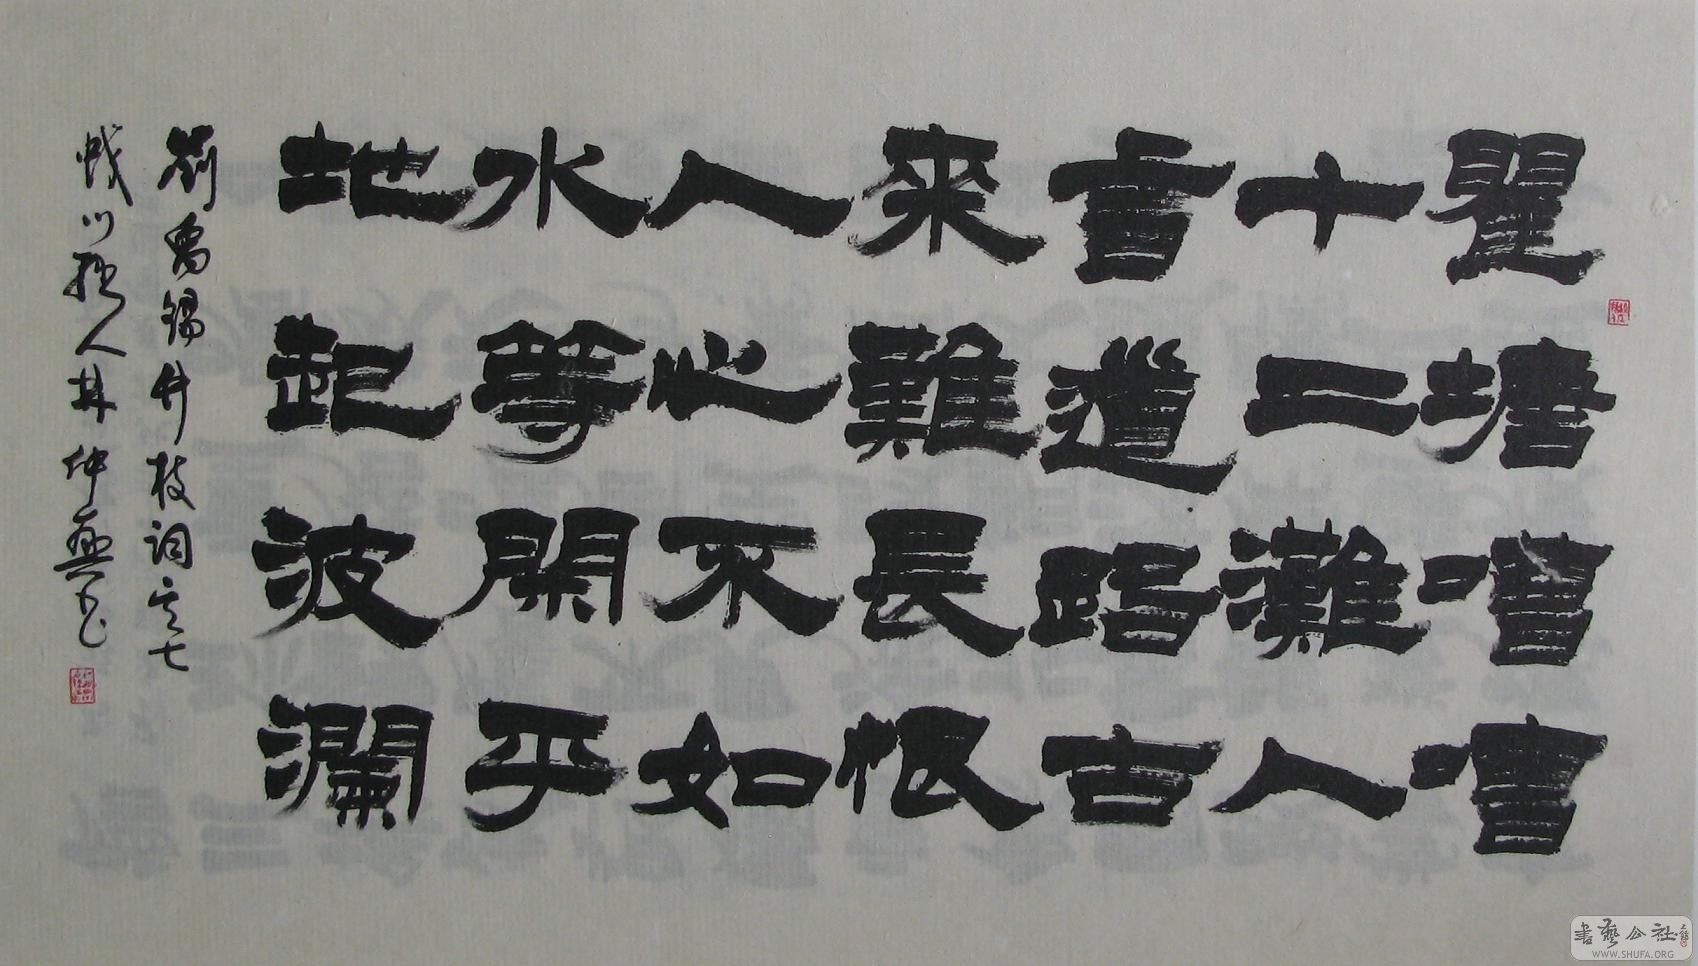 瞿塘嘈嘈
十二灘人
言道路古
來難長恨
人心不如
水等閑平
地起波瀾
劉禹錫竹枝詞之七
川人林仲興书
書藝公社
WWW.SHUFA.ORG